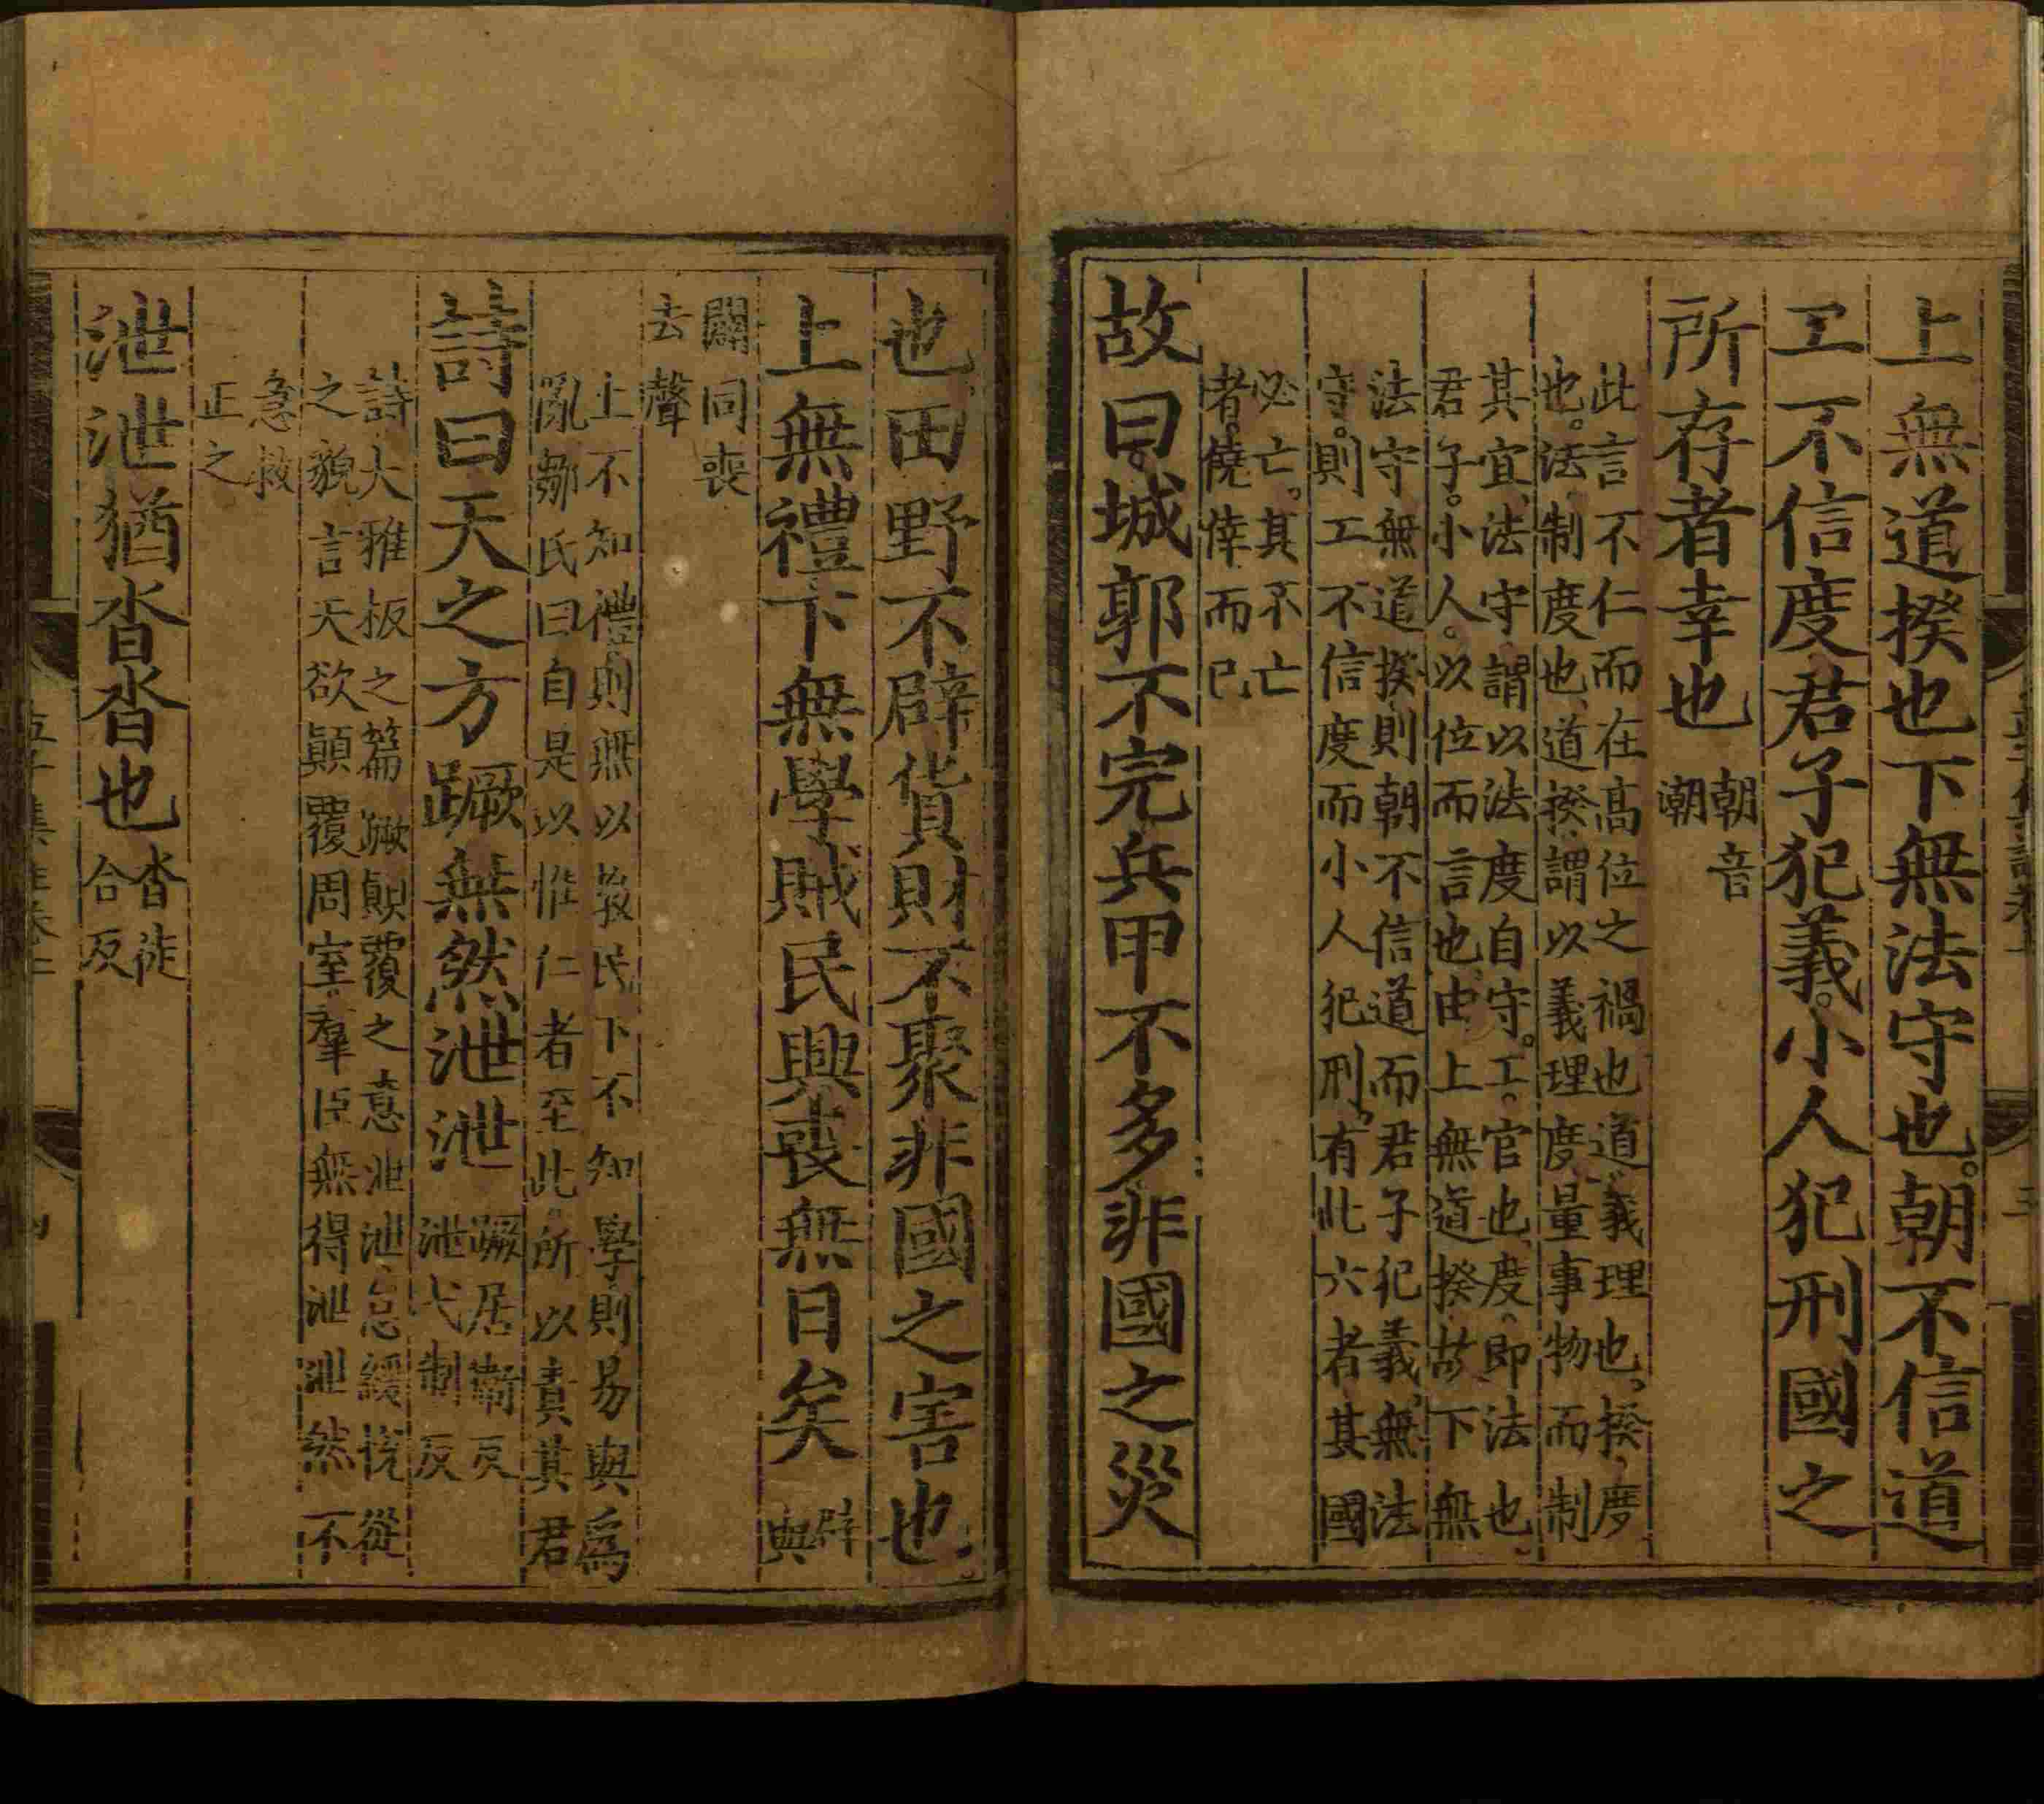 上無道揆也下無法守也。朝不信道
工不信度君子犯義。小人犯刑國之
所存者幸也
朝音
潮
此言不仁而在高位之禍也道義理也揆度
也。法制度也道揆謂以義理度量事物而制
其宜法守謂以法度自守。工。官也度即法也
君子。小人。以位而言也由上無道揆故下無
法守無道揆則朝不信道而君子犯義無法
守。則工不信度而小人犯刑。有此六者其國
必亡。其不亡
者。僥倖而已
故曰城郭不完兵甲不多非國之災
也田野不辟貨財不聚非國之害也
上無禮下無學賊民興喪無日矣
辟
與
闢同喪
去聲
上不知禮則無以教民下不知學則易與爲
亂鄒氏曰自是以惟仁者至此所以責其君
詩曰天之方蹶無然泄泄
蹶居衛反
泄弋制反
詩大雅板之篇蹶顛覆之意泄泄怠緩悅從
之貌言天欲顛覆周室羣臣無得泄泄然不
急救
正之
泄泄猶沓沓也
沓徒
合反